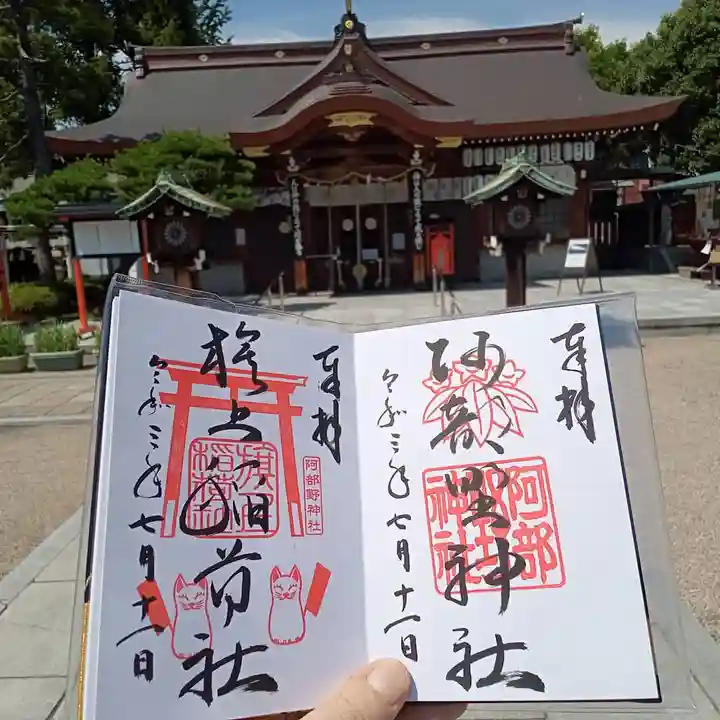 奉拝
阿部野神社
阿部
野
神社
令和三年七月十一日
奉拝
旗上稲荷社
旗上
稲荷
阿部野神社
令和三年七月十一日